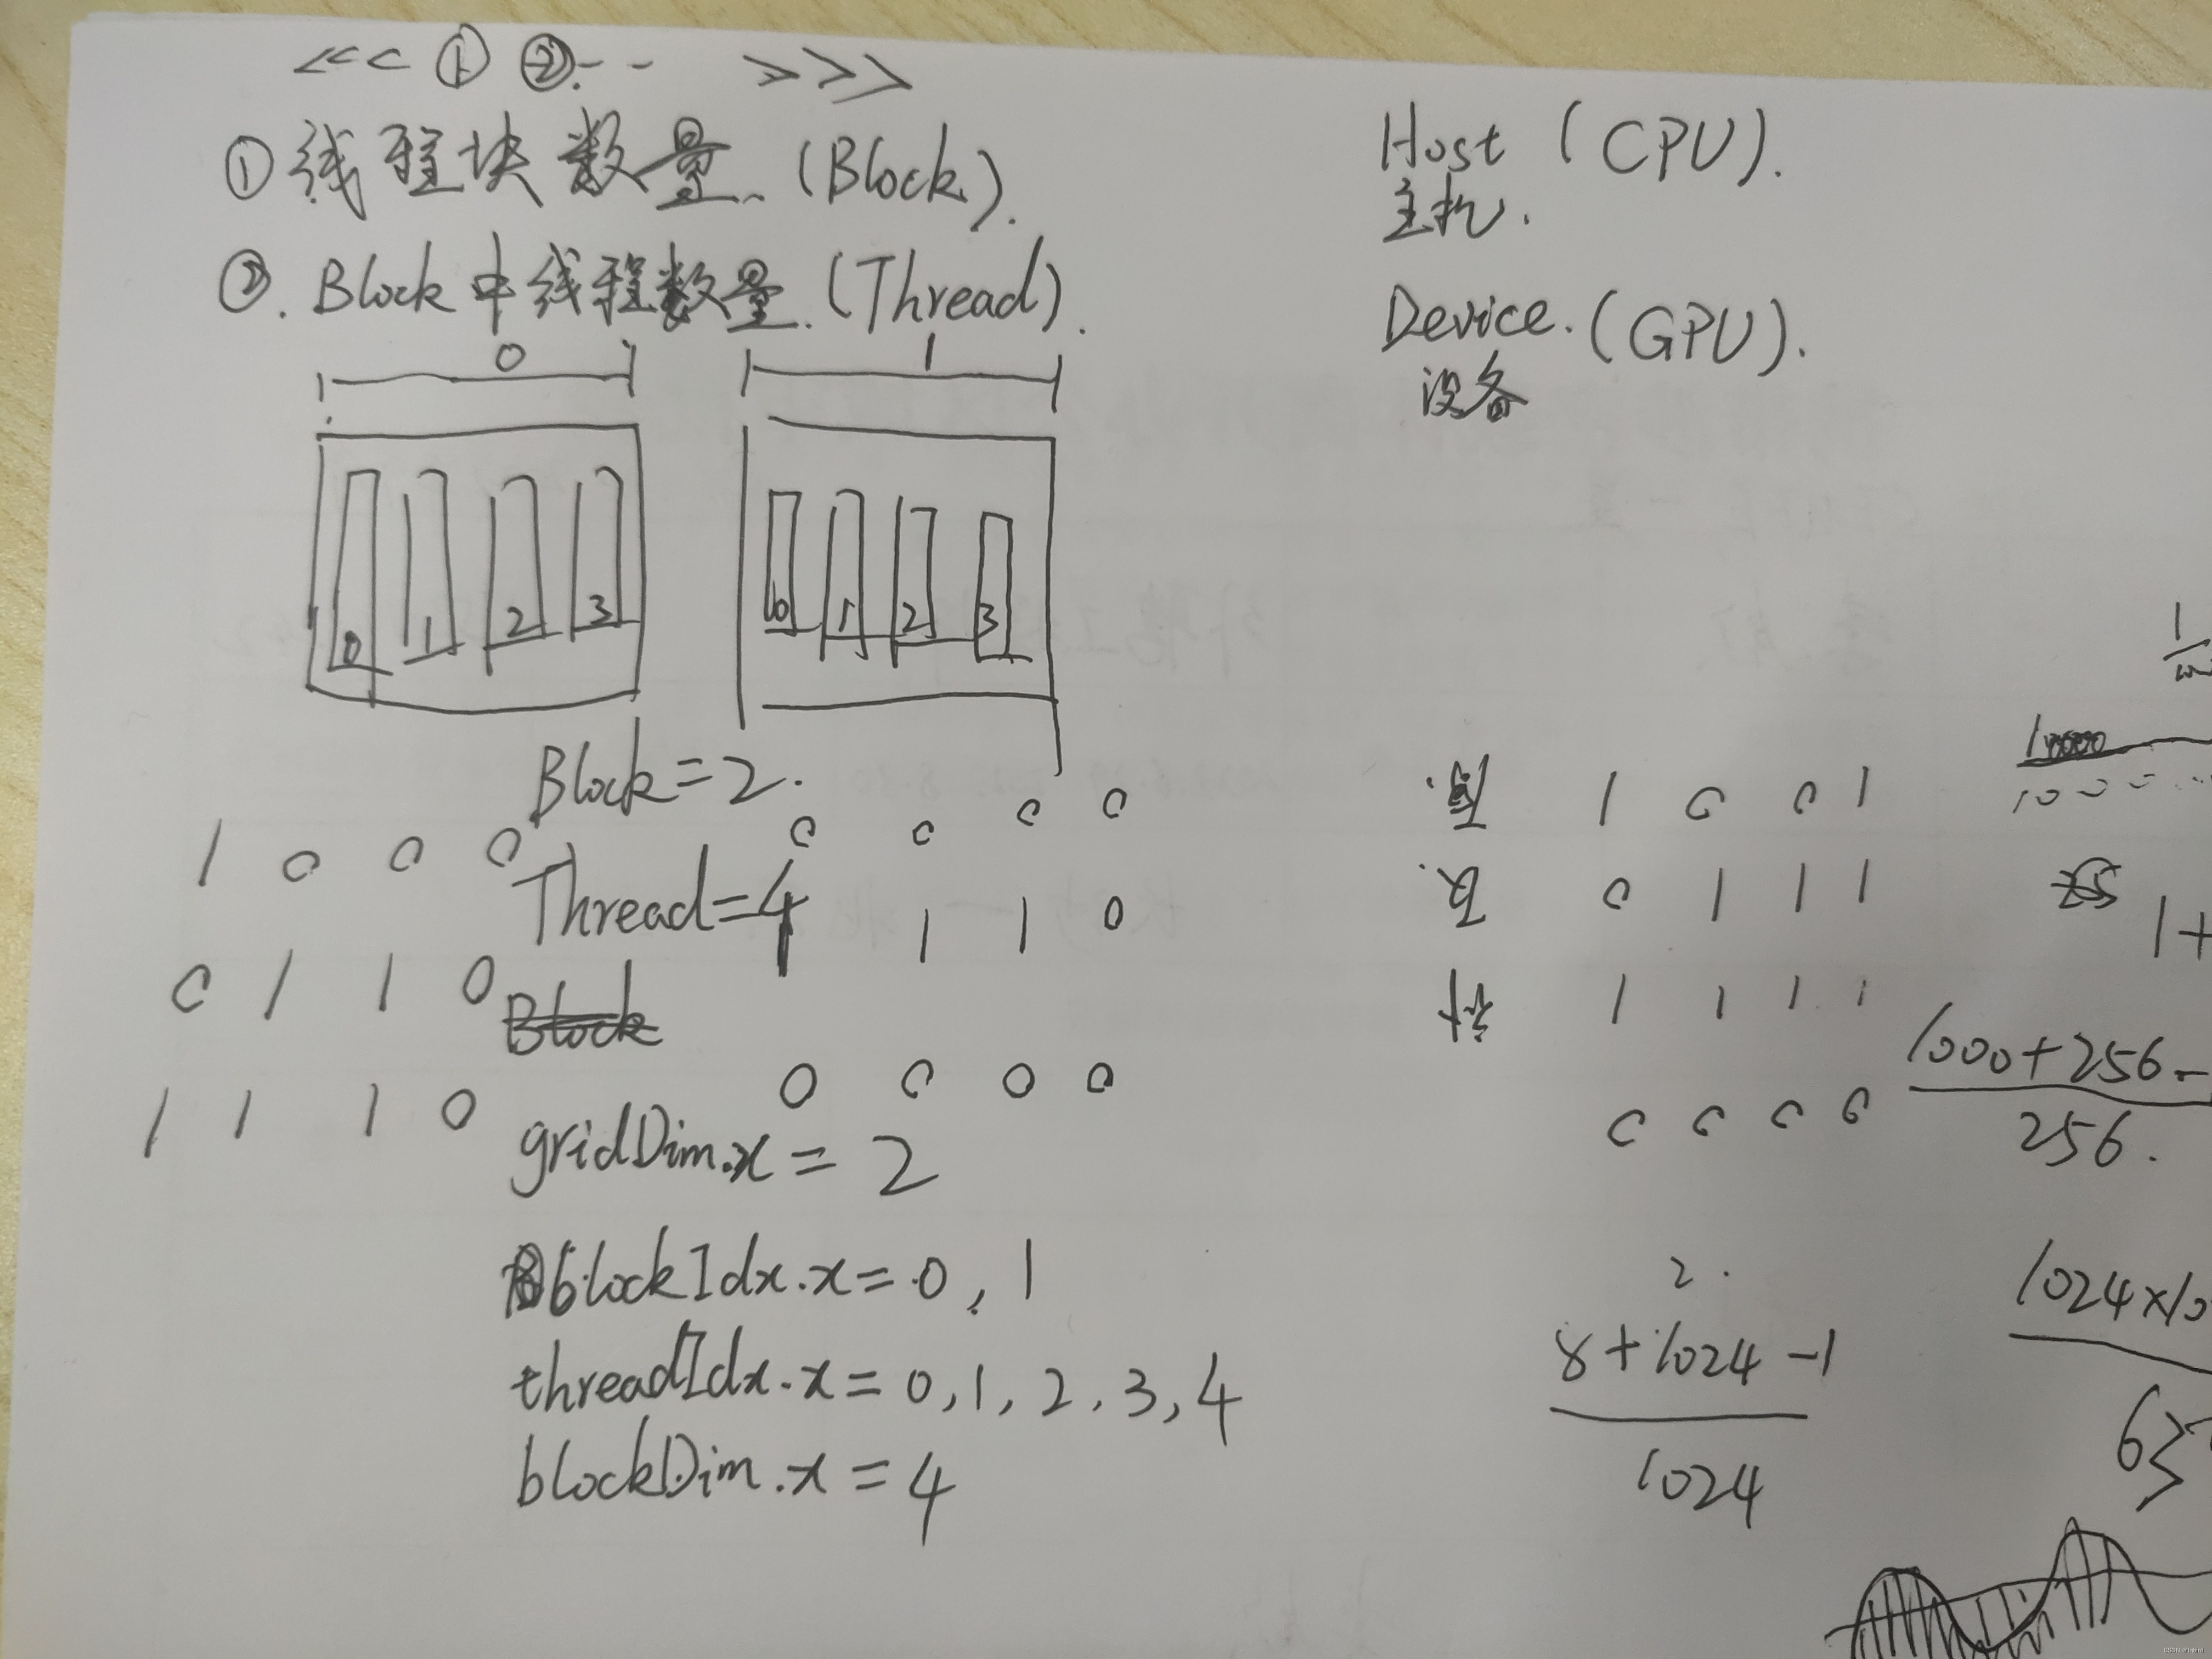 <<< ① ②-- >>>
①线程块数量、(Block).
②. Block中线程数量.(Thread).
0 1
0 1 2 3
0 1 2 3
Block=2.
Thread=4
Block
gridDim.x = 2
blockIdx.x = 0, 1
threadIdx.x = 0, 1, 2, 3, 4
blockDim.x = 4
1 0 0 0
0 1 1 0
1 1 1 0
0 0 0 0
1 1 0
0 0 0 0
Host (CPU).
主机.
Device.(GPU).
设备
1 0 0 1
0 1 1 1
1 1 1 1
0 0 0 0
2.
8+1024-1
1024
1
1000
1+
1000+256-
256.
1024×10